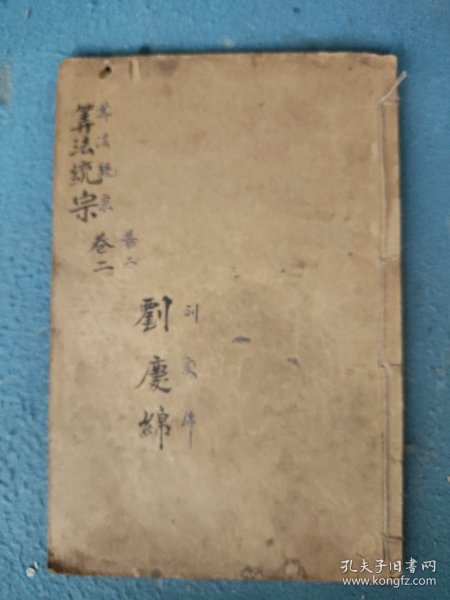 算法統宗
卷二
算法統宗
卷二
劉慶綿
刘庆绵
孔夫子旧书网
www.kongfz.com